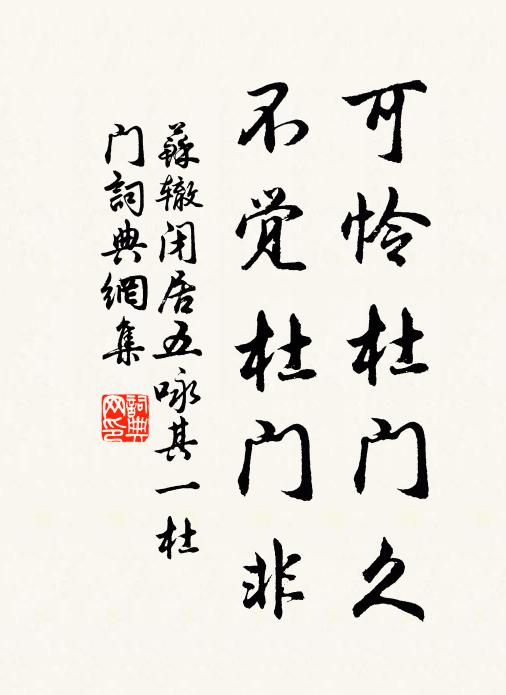 可怜杜门久
不觉杜门非
蘇辙闭居五咏其一杜
门詞典網集
詞典网印